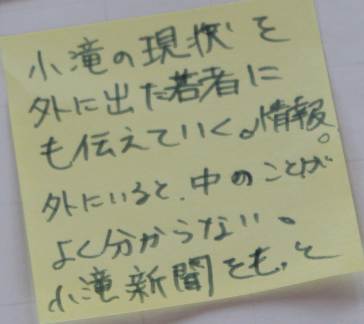 小滝の現状を
外に出た若者に
も伝えていく。情報
外にいると、中のことが
よく分からない。
小滝新聞をもっと